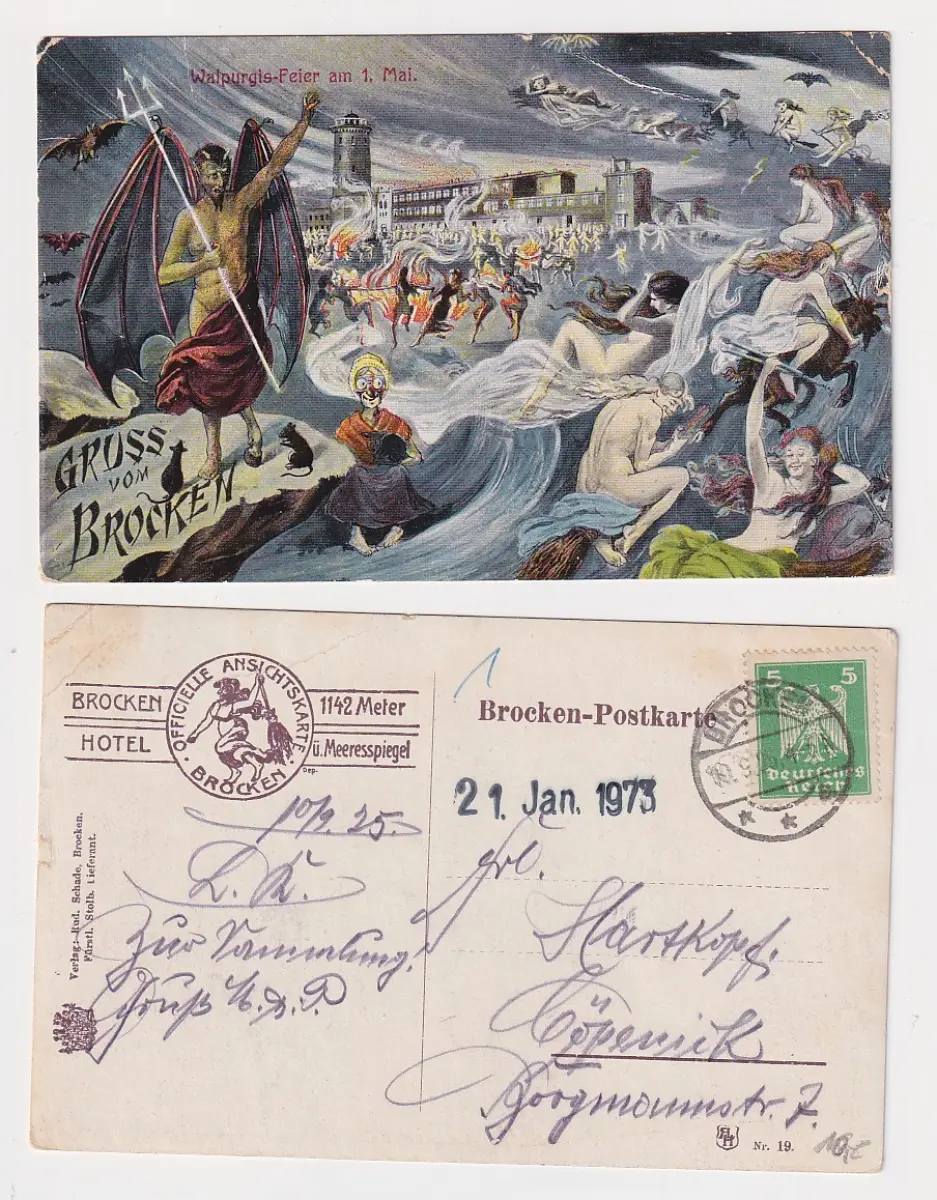 Walpurgis-Feier am 1. Mai.
GRUSS
VOM
BROCKEN
BROCKEN
HOTEL
OFFICIELLE ANSICHTSKARTE
BROCKEN
1142 Meter
ü. Meeresspiegel
Dep.
1
Brocken-Postkarte
5 5
Deutsches
Reich
BROCKEN
21. Jan. 1973
10/9. 25.
L. K.
Zur Sammlung!
Gruß
Frl.
Hartkopf.
Cöpenick
Borgmannstr. 7.
Verlag:-Rud. Schade, Brocken.
Fürstl. Stolb. Lieferant.
Nr. 19.
10,-